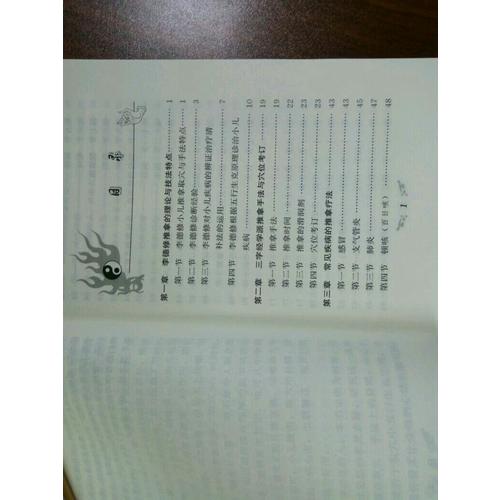 目录
第一章 李德修推拿的理论与技法特点…………1
第一节 李德修小儿推拿取穴与手法特点…………1
第二节 李德修诊断经验…………3
第三节 李德修对小儿疾病的辨证治疗清
补法的运用…………7
第四节 李德修根据五行生克原理诊治小儿
疾病…………10
第二章 三字经学派推拿手法与穴位考订…………19
第一节 推拿手法…………19
第二节 推拿时间…………22
第三节 推拿的滑润剂…………23
第四节 穴位考订…………23
第三章 常见疾病的推拿疗法…………43
第一节 感冒…………43
第二节 支气管炎…………45
第三节 肺炎…………47
第四节 顿咳（百日咳）…………48
1